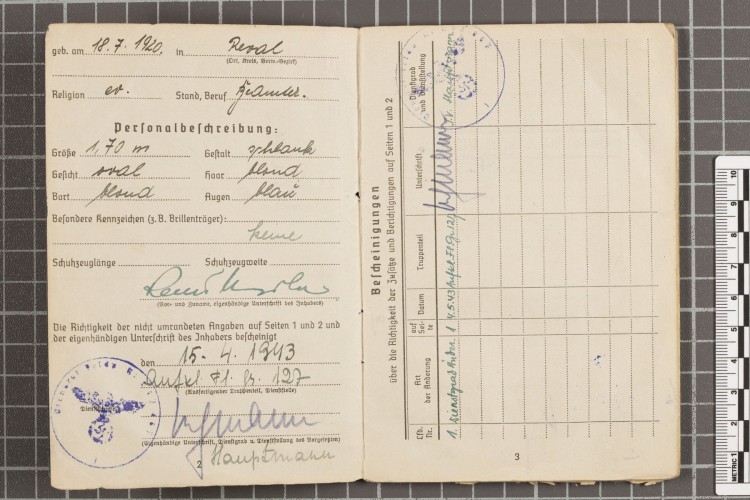 geb. am 18.7.1920. in Reval
(Ort, Kreis, Verw.-Bezirk)
Religion ev. Stand, Beruf Beamter.
Personalbeschreibung:
Größe 1,70 m Gestalt schlank
Gesicht oval Haar blond
Bart blond Augen blau
Besondere Kennzeichen (z. B. Brillenträger):
keine
Schuhzeuglänge Schuhzeugweite
(Vor- und Zuname, eigenhändige Unterschrift des Inhabers)
Die Richtigkeit der nicht umrandeten Angaben auf Seiten 1 und 2 und
der eigenhändigen Unterschrift des Inhabers bescheinigt
den 15. 4. 1943
Aufkl. Fl. Gr. 127
(Ausfertigender Truppenteil, Dienststelle)
(Eigenhändige Unterschrift, Dienstgrad u. Dienststellung des Vorgesetzten)
2 Hauptmann
Bescheinigungen
über die Richtigkeit der Zusätze und Berichtigungen auf Seiten 1 und 2
Lfd. Nr. Art der Änderung auf Seite Datum Truppenteil Unterschrift Dienstgrad und Dienststellung
1. Dienstgrad Änder. 1 4.5.43 Aufkl. Fl. Gr. 127
3
METRIC 1 2 3 4 5 6 7 8 9 10